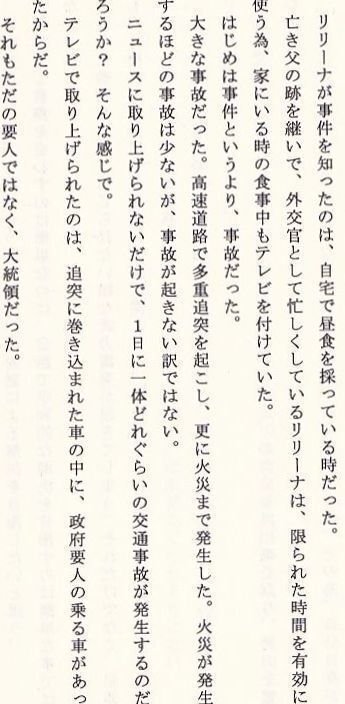 リリーナが事件を知ったのは、自宅で昼食を採っている時だった。
亡き父の跡を継いで、外交官として忙しくしているリリーナは、限られた時間を有効に
使う為、家にいる時の食事中もテレビを付けていた。
はじめは事件というより、事故だった。
大きな事故だった。高速道路で多重追突を起こし、更に火災まで発生した。火災が発生
するほどの事故は少ないが、事故が起きない訳ではない。
ニュースに取り上げられないだけで、1日に一体どれぐらいの交通事故が発生するのだ
ろうか？ そんな感じで。
テレビで取り上げられたのは、追突に巻き込まれた車の中に、政府要人の乗る車があっ
たからだ。
それもただの要人ではなく、大統領だった。